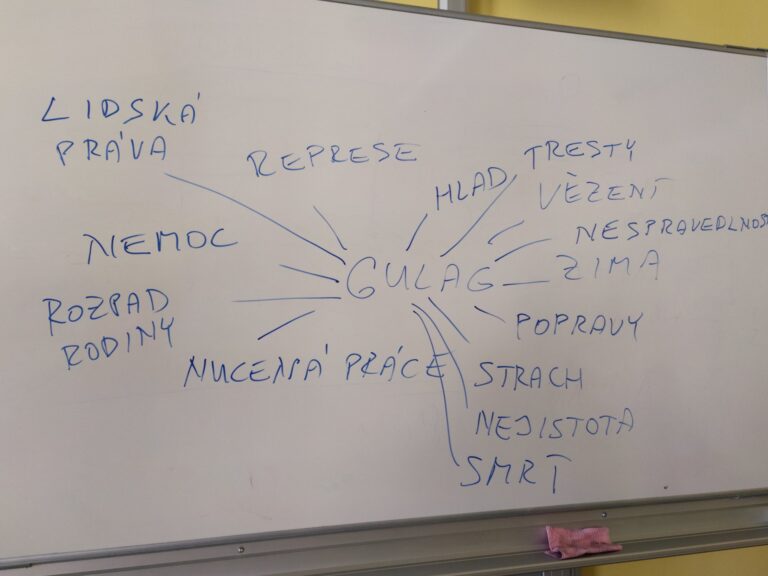 LIDSKÁ
PRÁVA
REPRESE
HLAD
TRESTY
VĚZENÍ
NESPRAVEDLNOST
ZIMA
NEMOC
GULAG
ROZPAD
RODINY
POPRAVY
NUCENÁ PRÁCE
STRACH
NEJISTOTA
SMRT